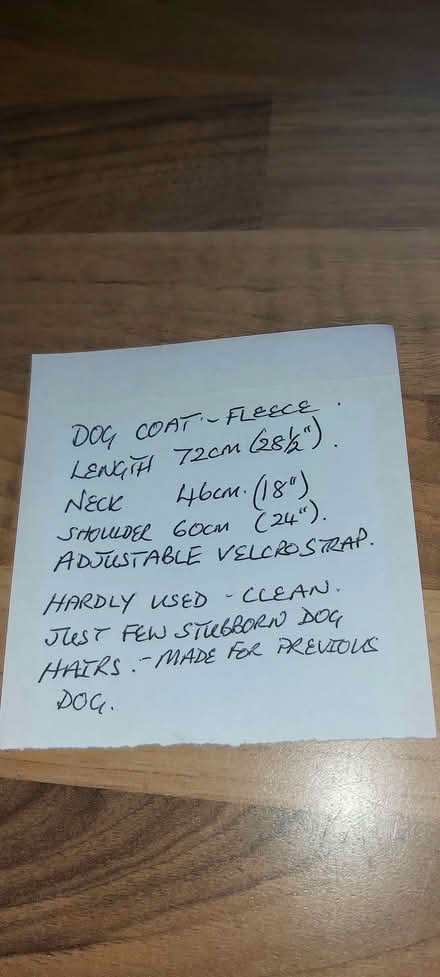 DOG COAT - FLEECE.
LENGTH 72CM (28½").
NECK 46CM. (18")
SHOULDER 60CM (24").
ADJUSTABLE VELCRO STRAP.
HARDLY USED - CLEAN.
JUST FEW STUBBORN DOG
HAIRS. - MADE FOR PREVIOUS
DOG.